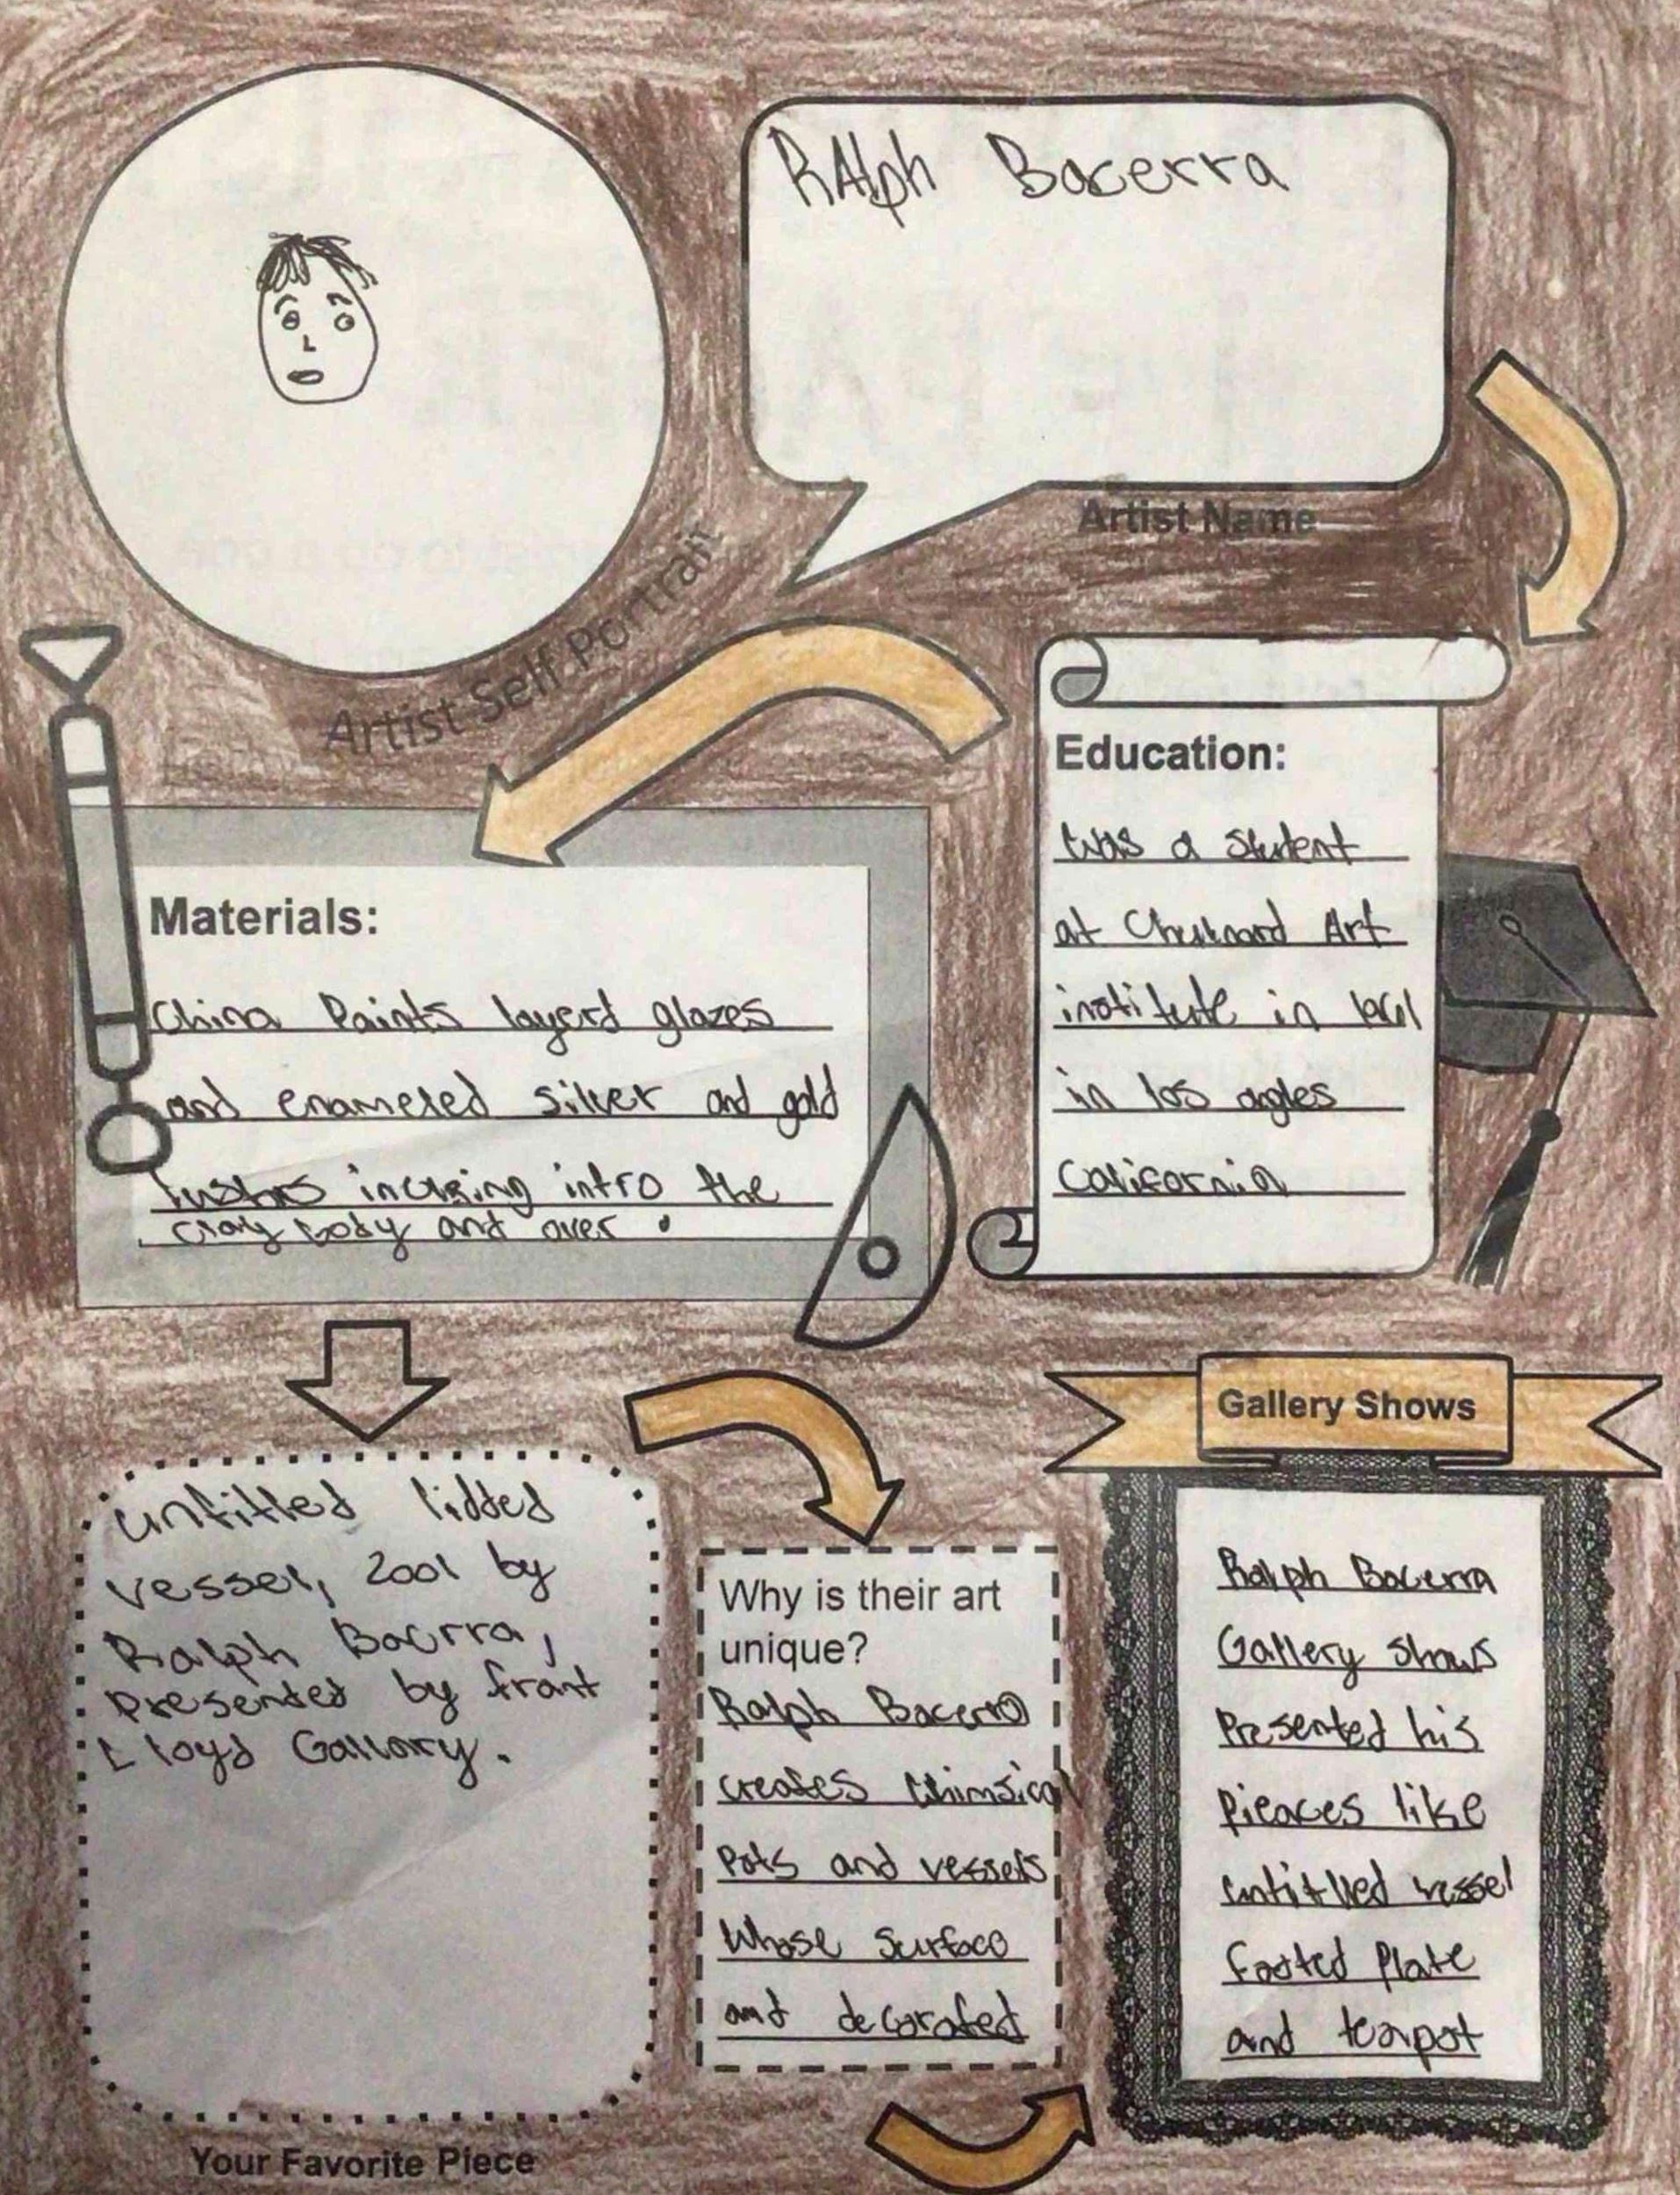 RAlph Bacerra
Artist Name
Artist Self Portrait
Education:
Was a student
at Chuinard Art
institute in
in los angles
California
Materials:
China Paints layerd glazes
and enameled silver and gold
lusters incluing intro the
clay body and over.
untitled lidded
vessel, 2001 by
Ralph Bacrra,
Presented by frant
Lloyd Gallory.
Your Favorite Piece
Why is their art
unique?
Ralph Bacerra
creates Whimsical
Pots and vessels
Whose Surface
and decorated
Gallery Shows
Ralph Bacerra
Gallery Shows
Presented his
Pieaces like
untitlled vessel
Plate
and teapot